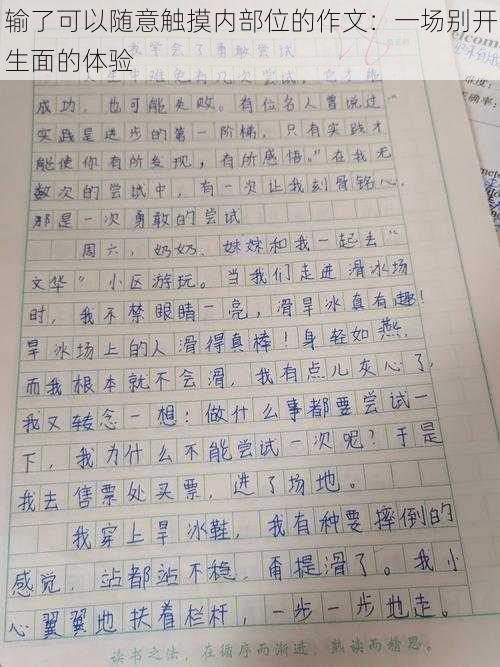 输了可以随意触摸内部位的作文：一场别开
生面的体验
我学会了勇敢尝试
人生中难免有几次尝试，它才能
成功，也可能失败。有位名人曾说过"
实践是进步的第一阶梯，只有实践才
能使你有所发现，有所感悟。"在我无
数次的尝试中，有一次让我刻骨铭心，
那是一次勇敢的尝试
周六，奶奶、妹妹和我一起去"
文华"小区游玩。当我们走进滑冰场
时，我不禁眼睛一亮，滑旱冰真有趣！
旱冰场上的人滑得真棒！身轻如燕，
而我根本就不会滑，我有点儿灰心了，
我又转念一想：做什么事都要尝试一
下，我为什么不能尝试一次呢？于是
我去售票处买票，进了场地。
我穿上旱冰鞋，我有种要摔倒的
感觉，站都站不稳，甭提滑了。我小
心翼翼地扶着栏杆，一步一步地走。
读书之法，在循序而渐进，熟读而精思。